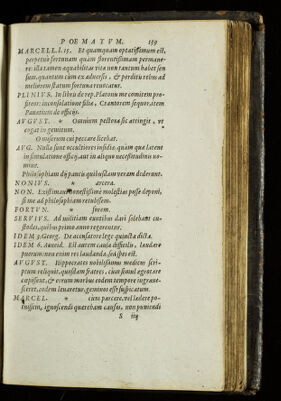 POEMATVM. 139
MARCELL.l.15. Et quamquam optatissimum est,
perpetuò fortunam quàm florentissimam permane-
re: illa tamen æquabilitas vitæ non tantum habet sen
sum, quantum cùm ex adversis, & perditis rebus ad
meliorem statum fortuna revocatur.
PLINIVS. In libris de rep. Platonis me comitem pro
fiteor: in consolatione filiæ, Crantorem sequor, item
Panætium de officijs.
AVGVST. * Omnium pectora sic attingit, ut
cogat in gemitum.
O miserum cui peccare licebat.
AVG. Nulla sunt occultiores insidiæ, quàm quæ latent
in simulatione officij, aut in aliquo necessitudinis no-
mine.
Philosophiam dij paucis quibusdam veram dederunt.
NONIVS. * arcera.
NON. Existimas honestissimè molestias posse deponi,
si me ad philosophiam retulissem.
FORTVN. * forem.
SERVIVS. Ad militiam euntibus dari solebant cu-
stodes, quibus primo anno regerentur.
IDEM 3. Georg. De accusatore lege quæsita dicta.
IDEM 6. Aeneid. Est autem causa difficilis, laudare
puerum: non enim res laudanda, sed spes est.
AVGVST. Hippocrates nobilissimus medicus scri-
ptum reliquit, quosdam fratres, cùm simul ægrotare
cœpissent, & eorum morbus eodem tempore ingrave-
sceret, eodem levaretur, geminos esse suspicatum.
MARCEL. * cum parcere, vel lædere po-
tuissem, ignoscendi quærebam causas, non puniendi
S iij